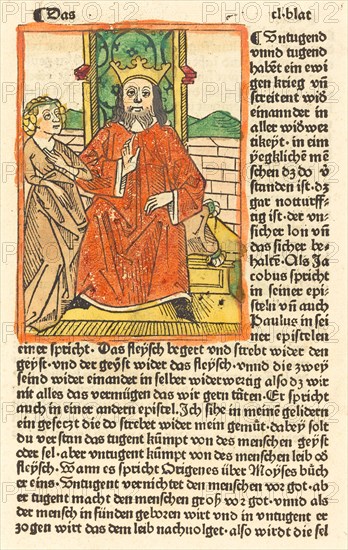 Das cl·blat
¶ Untugend
vnnd tugend
habēt ein ewi
gen krieg vn̄
streitent wid̄
einannder in
aller wid̄wer
tikeyt· in eim
yegklichē mē
schen dz do v̄
standen ist·dz
gar notturff⸗
tig ist·der vn⸗
sicher lon vn̄
das sicher be⸗
haltē·Als Ja
cobus spricht
in seiner epi⸗
steln vn̄ auch
Paulus in sei
ner epistelen
einer spricht· Das fleysch begert vnd strebt wider den
geyst· vnd der geyst wider das fleysch· vnnd die zwey
seind wider einander in selber widerwertig also dz wir
nit alles das vermügen das wir gern täten· Er spricht
auch in einer andern epistel· Ich sihe in meinē gelidern
ein gesetzt die do strebet wider mein gemüt· dabey solt
du verstan das tugent kümpt von des menschen geyst
oder sel· aber vntugent kümpt von des menschen leib od̄
fleysch· Wann es spricht Origenes über Moyses büch
er eins· Untugent vernichtet den menschen vor got· ab
er tugent macht den menschen groß vor got· vnnd als
der mensch in sünden geboren wirt vnd in vntugent er
zogen wirt das dem leib nachuolget· also wirdt die sel